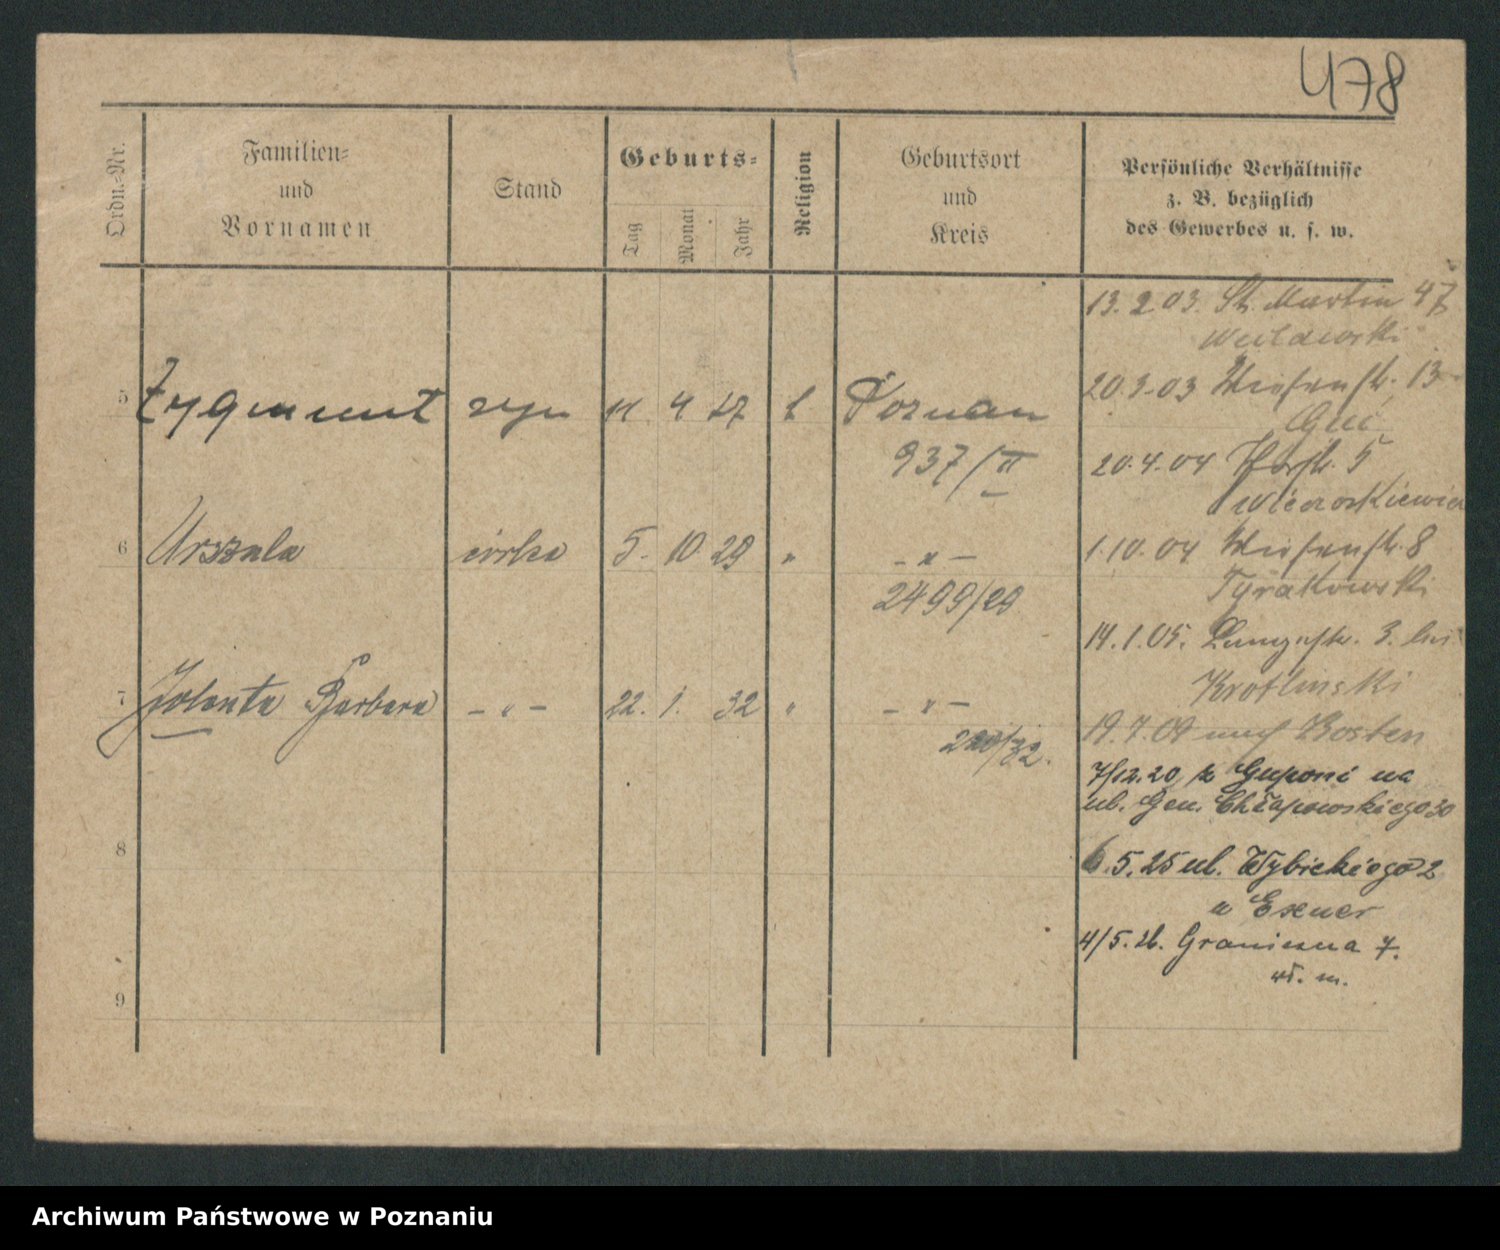 478
Ordn.-Nr.
Familien-
und
Vornamen
Stand
Geburts-
Tag
Monat
Jahr
Religion
Geburtsort
und
Kreis
Persönliche Verhältnisse
z. B. bezüglich
des Gewerbes u. s. w.
13.2.03. St. Martin 47
20.3.03 Wiesenstr. 13
5 Zygmunt syn 11. 4 27 k Poznan
937/II
20.4.04 5
6 Urszula córka 5. 10 29 " - " -
2499/29
1.10.04 Wiesenstr. 8
Tyrakowski
14.1.05. Langestr. 3. bei
Krotlinski
7 Jolenta Barbara - " - 22. 1. 32 " - " -
/32.
19.7.09 nach Posten
7/12.20 z Gluponi na
ul. Gen. Chłapowskiego 30
8
6.5.25 ul. Wybickiego 2
u Exner
4/5.26. Graniczna 7.
wł. m.
9
Archiwum Państwowe w Poznaniu